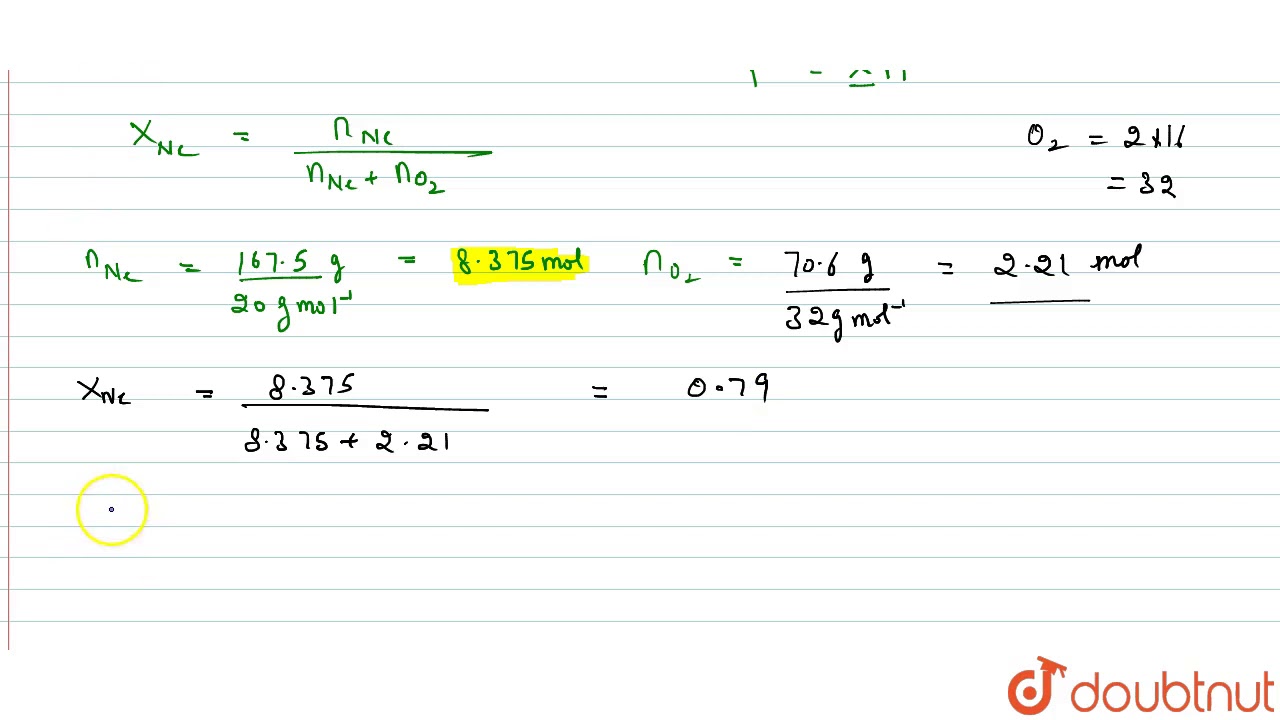 X_Ne = n_Ne / (n_Ne + n_O2)
O2 = 2×16
= 32
n_Ne = 167.5 g / 20 g mol⁻¹ = 8.375 mol n_O2 = 70.6 g / 32 g mol⁻¹ = 2.21 mol
X_Ne = 8.375 / (8.375 + 2.21) = 0.79
doubtnut